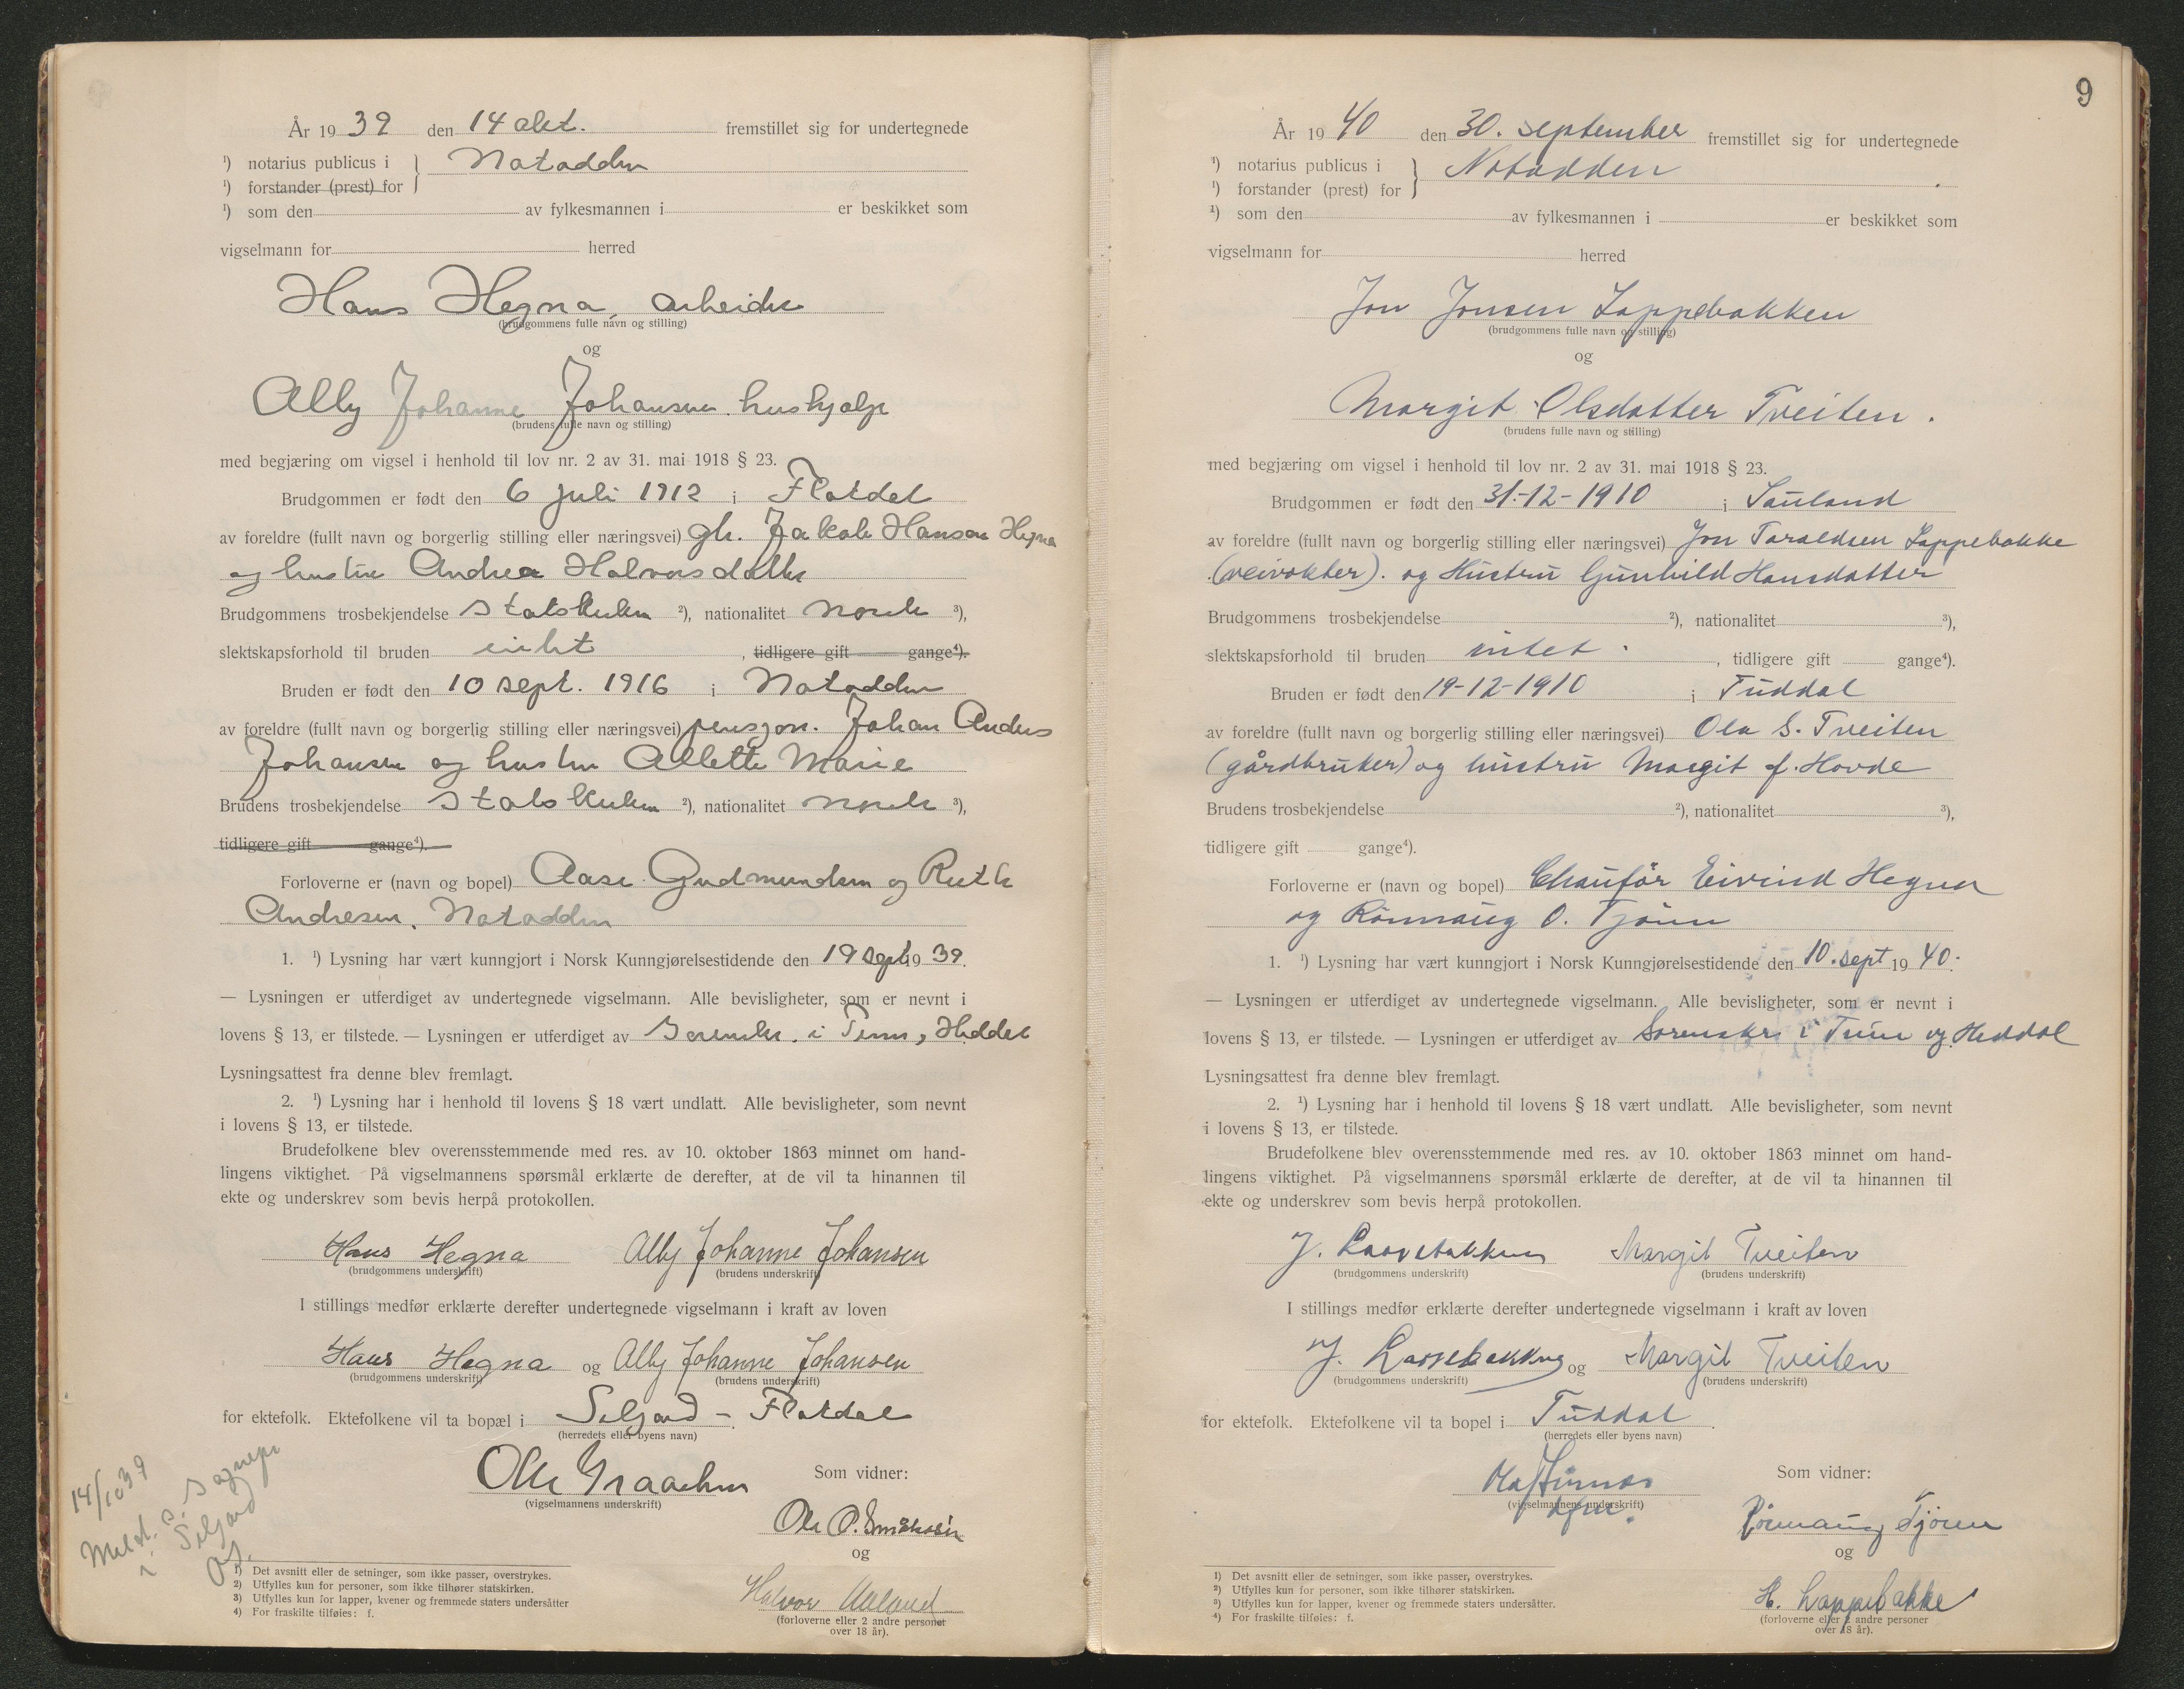 År 19 39 den 14 okt. fremstillet sig for undertegnede
¹) notarius publicus i } Notodden
¹) forstander (prest) for
¹) som den av fylkesmannen i er beskikket som
vigselmann for herred
Hans Hegna, arbeider
(brudgommens fulle navn og stilling)
og
Ally Johanne Johansen. hushjelp
(brudens fulle navn og stilling)
med begjæring om vigsel i henhold til lov nr. 2 av 31. mai 1918 § 23.
Brudgommen er født den 6 juli 1912 i Flatdal
av foreldre (fullt navn og borgerlig stilling eller næringsvei) gbr. Jakob Hansen Hegna
og hustru Andrea Halvorsdatter
Brudgommens trosbekjendelse Statskirken ²), nationalitet norsk ³),
slektskapsforhold til bruden intet , tidligere gift gange⁴).
Bruden er født den 10 sept. 1916 i Notodden
av foreldre (fullt navn og borgerlig stilling eller næringsvei) pensjon. Johan Anders
Johansen og hustru Allette Marie
Brudens trosbekjendelse Statskirken ²), nationalitet norsk ³),
tidligere gift gange⁴).
Forloverne er (navn og bopel) Aase Gudmundsen og Ruth
Andresen. Notodden
1. ¹) Lysning har vært kunngjort i Norsk Kunngjørelsestidende den 19 sept 19 39.
— Lysningen er utferdiget av undertegnede vigselmann. Alle bevisligheter, som er nevnt i
lovens § 13, er tilstede. — Lysningen er utferdiget av Sorenskr. i Tinn, Heddal
Lysningsattest fra denne blev fremlagt.
2. ¹) Lysning har i henhold til lovens § 18 vært undlatt. Alle bevisligheter, som nevnt
i lovens § 13, er tilstede.
Brudefolkene blev overensstemmende med res. av 10. oktober 1863 minnet om hand-
lingens viktighet. På vigselmannens spørsmål erklærte de derefter, at de vil ta hinannen til
ekte og underskrev som bevis herpå protokollen.
Hans Hegna Ally Johanne Johansen
(brudgommens underskrift) (brudens underskrift)
I stillings medfør erklærte derefter undertegnede vigselmann i kraft av loven
Hans Hegna og Ally Johanne Johansen
(brudgommens underskrift) (brudens underskrift)
for ektefolk. Ektefolkene vil ta bopæl i Seljord - Flatdal
(herredets eller byens navn)
14/10 39
Meldt s. Sognepr
i Seljord
Ole
(vigselmannens underskrift)
Som vidner:
Ole O.
og
Halvor
(forloverne eller 2 andre personer
over 18 år).
1) Det avsnitt eller de setninger, som ikke passer, overstrykes.
2) Utfylles kun for personer, som ikke tilhører statskirken.
3) Utfylles kun for lapper, kvener og fremmede staters undersåtter
4) For fraskilte tilføies: f.
9
År 19 40 den 30. september fremstillet sig for undertegnede
¹) notarius publicus i } Notodden
¹) forstander (prest) for
¹) som den av fylkesmannen i er beskikket som
vigselmann for herred
Jon Jonsen Lappebakken
(brudgommens fulle navn og stilling)
og
Margit Olsdatter Tveiten.
(brudens fulle navn og stilling)
med begjæring om vigsel i henhold til lov nr. 2 av 31. mai 1918 § 23.
Brudgommen er født den 31-12-1910 i Sauland
av foreldre (fullt navn og borgerlig stilling eller næringsvei) Jon Taraldsen Lappebakke
(veivokter). og Hustru Gunhild Hansdatter
Brudgommens trosbekjendelse ²), nationalitet ³),
slektskapsforhold til bruden intet , tidligere gift gange⁴).
Bruden er født den 19-12-1910 i Tuddal
av foreldre (fullt navn og borgerlig stilling eller næringsvei) Ola S. Tveiten
(gårdbruker) og hustru Margit f. Hovde
Brudens trosbekjendelse ²), nationalitet ³),
tidligere gift gange⁴).
Forloverne er (navn og bopel) Chaufør Eivind Hegna
og Rønnaug O. Tjønn
1. ¹) Lysning har vært kunngjort i Norsk Kunngjørelsestidende den 10. sept 19 40.
— Lysningen er utferdiget av undertegnede vigselmann. Alle bevisligheter, som er nevnt i
lovens § 13, er tilstede. — Lysningen er utferdiget av Sorenskr. i Tinn og Heddal
Lysningsattest fra denne blev fremlagt.
2. ¹) Lysning har i henhold til lovens § 18 vært undlatt. Alle bevisligheter, som nevnt
i lovens § 13, er tilstede.
Brudefolkene blev overensstemmende med res. av 10. oktober 1863 minnet om hand-
lingens viktighet. På vigselmannens spørsmål erklærte de derefter, at de vil ta hinannen til
ekte og underskrev som bevis herpå protokollen.
J. Lappebakken Margit Tveiten
(brudgommens underskrift) (brudens underskrift)
I stillings medfør erklærte derefter undertegnede vigselmann i kraft av loven
J. Lappebakken og Margit Tveiten
(brudgommens underskrift) (brudens underskrift)
for ektefolk. Ektefolkene vil ta bopel i Tuddal.
(herredets eller byens navn)
(vigselmannens underskrift)
Som vidner:
Rønnaug Tjønn
og
H. Lappebakke
(forloverne eller 2 andre personer
over 18 år).
1) Det avsnitt eller de setninger, som ikke passer, overstrykes.
2) Utfylles kun for personer, som ikke tilhører statskirken.
3) Utfylles kun for lapper, kvener og fremmede staters undersåtter.
4) For fraskilte tilføies: f.